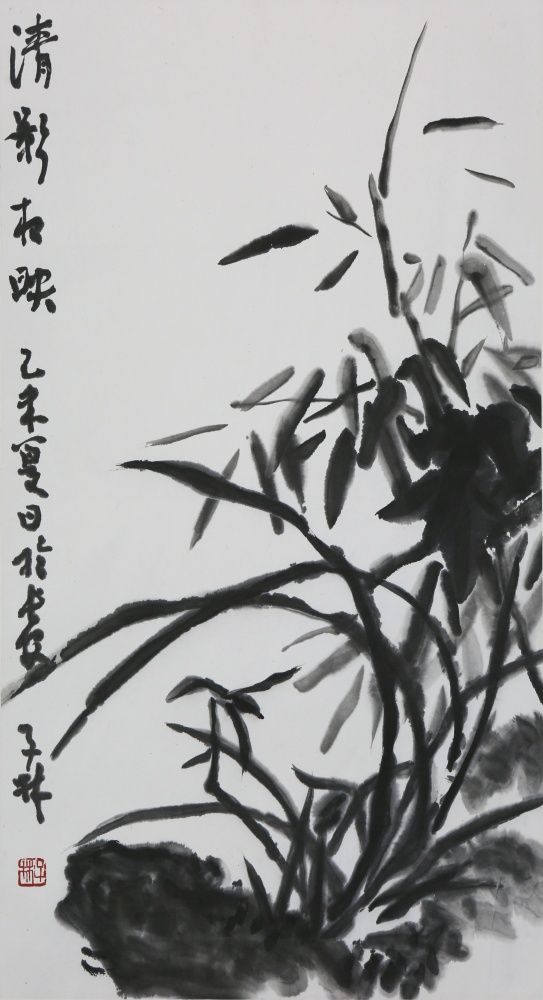 清影相映 乙未夏日於长安 子林
子林